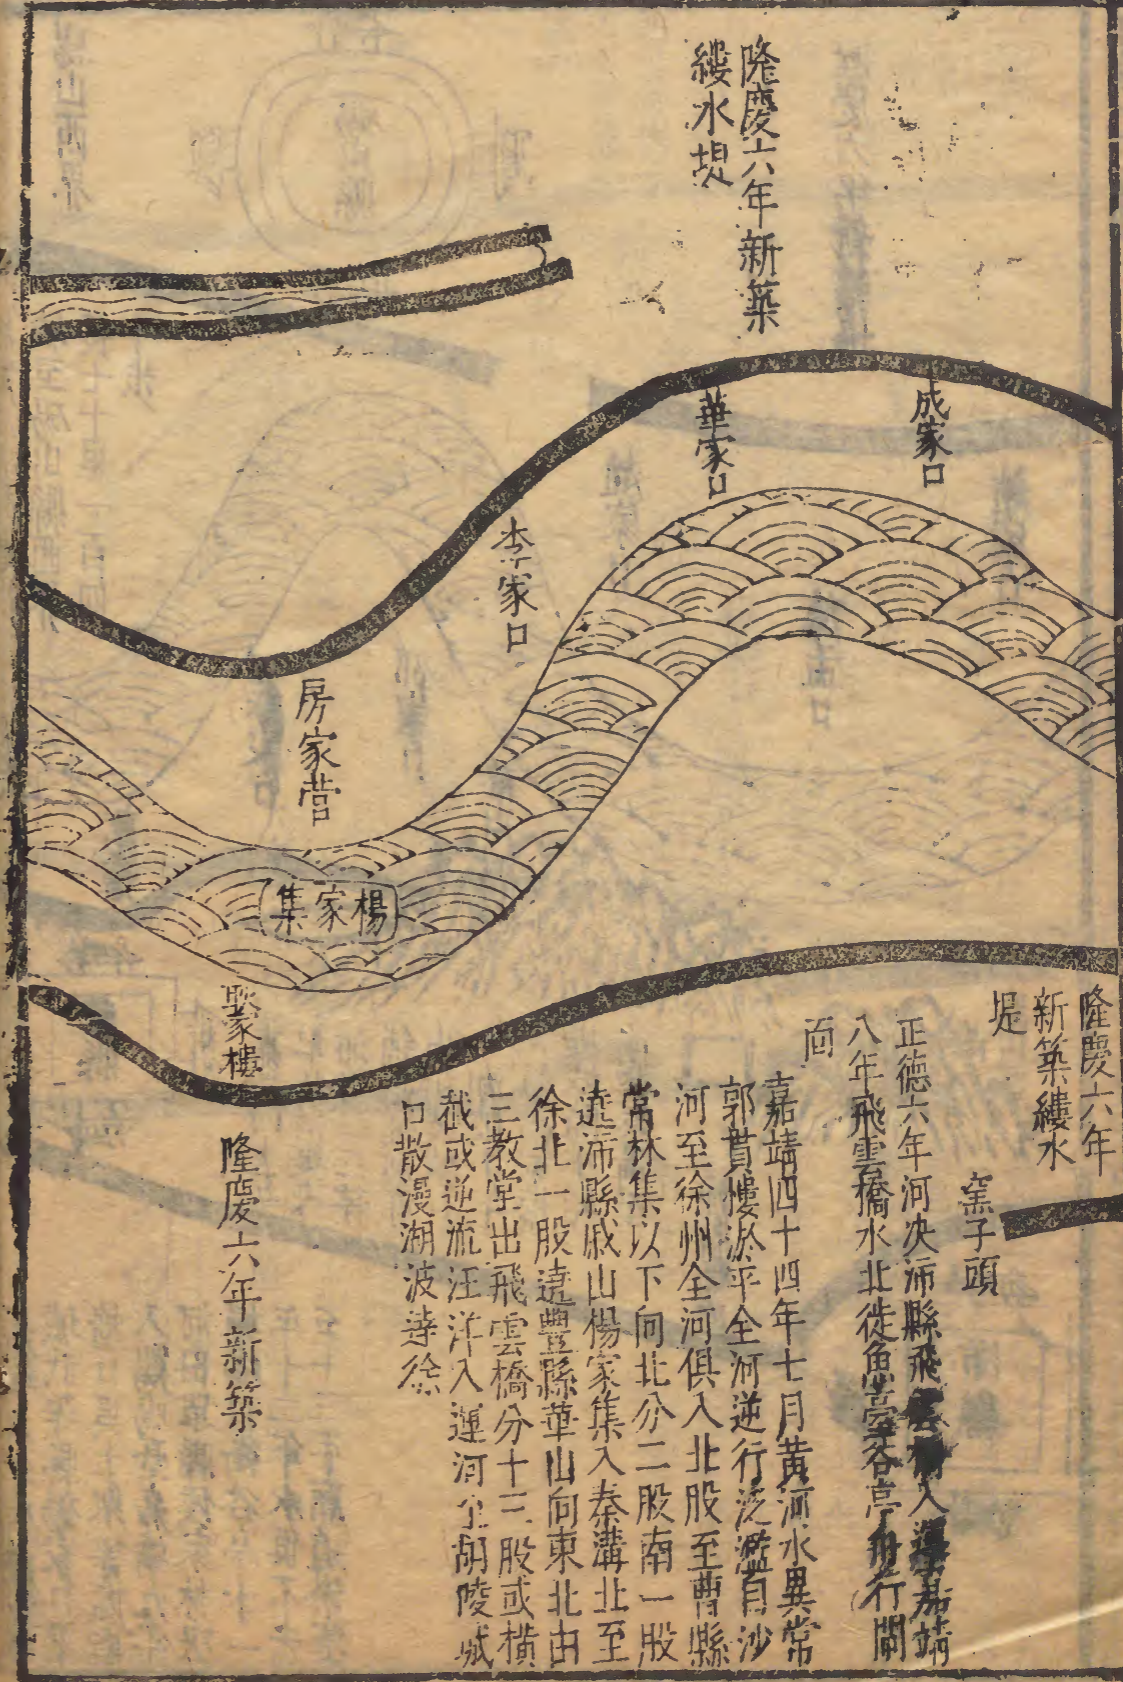 隆慶六年新築
縷水堤
成家口
華家口
李家口
房家营
楊家集
隆慶六年
新築縷水
堤
窑子頭
正德六年河决沛縣飛雲橋入運嘉靖
八年飛雲橋水北徙魚臺谷亭舟行閘
面
嘉靖四十四年七月黃河水異常
郭貫樓淤平全河逆行泛濫自沙
河至徐州全河俱入北股至曹縣
常林集以下向北分二股南一股
遶沛縣戚山楊家集入秦溝北至
徐北一股遶豐縣華山向東北由
三教堂出飛雲橋分十三股或橫
截或逆流汪洋入運河至胡陵城
口散漫湖波達徐
家樓
隆慶六年新築